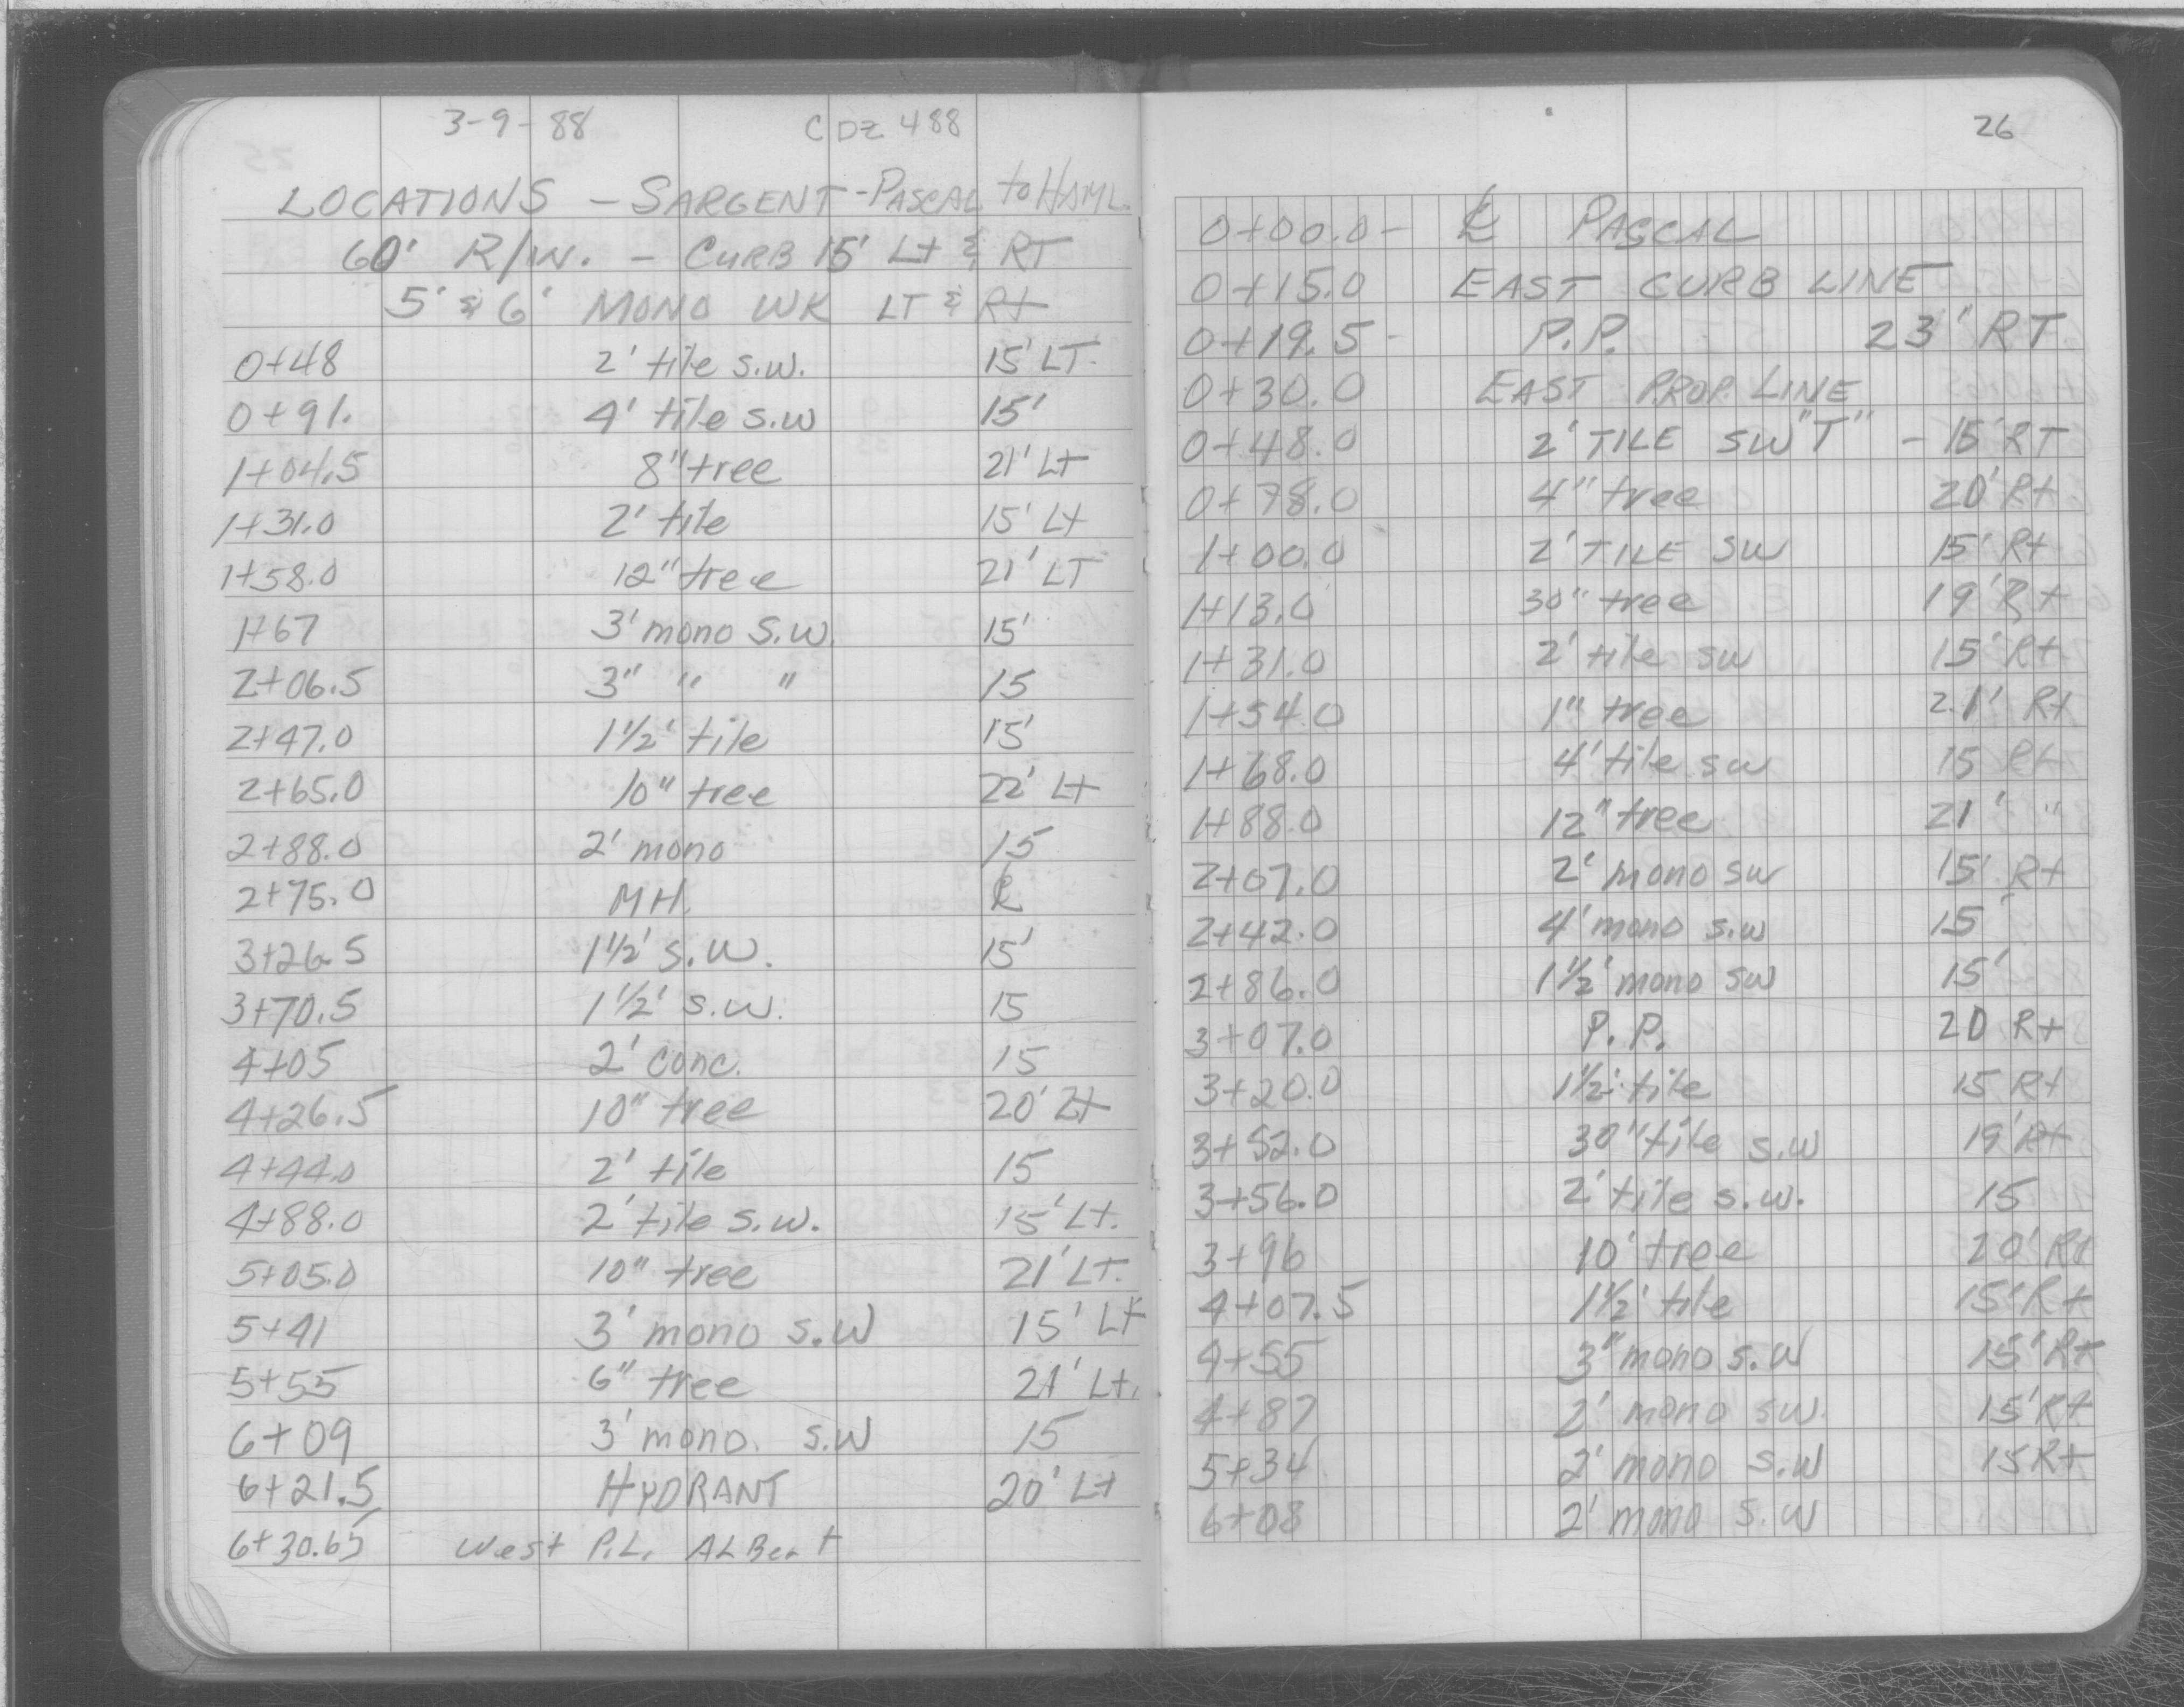 3-9-88 CDZ 488
LOCATIONS - SARGENT - PASCAL to HAML.
60' R/W. - CURB 15' Lt & RT
5' & 6' MONO WK LT & Rt
0+48 2' tile s.w. 15' LT.
0+91. 4' tile s.w 15'
1+04.5 8" tree 21' Lt
1+31.0 2' tile 15' Lt
1+58.0 12" tree 21' LT
1+67 3' mono S.W. 15'
2+06.5 3" " " 15
2+47.0 1½' tile 15'
2+65.0 10" tree 22' Lt
2+88.0 2' mono 15
2+75.0 MH. ℄
3+26.5 1½' s.w. 15'
3+70.5 1½' s.w. 15
4+05 2' conc. 15
4+26.5 10" tree 20' Lt
4+44.0 2' tile 15
4+88.0 2' tile s.w. 15' Lt.
5+05.0 10" tree 21' LT.
5+41 3' mono s.w 15' Lt
5+55 6" tree 21' Lt.
6+09 3' mono. s.w 15
6+21.5 HYDRANT 20' Lt
6+30.65 West P.L. ALBert
26
0+00.0 - ℄ PASCAL
0+15.0 EAST CURB LINE
0+19.5 - P.P. 23' RT
0+30.0 EAST PROP. LINE
0+48.0 2' TILE SW "T" - 15' RT
0+78.0 4" tree 20' Rt
1+00.0 2' TILE SW 15' Rt
1+13.0 30" tree 19' Rt
1+31.0 2' tile sw 15' Rt
1+54.0 1" tree 21' Rt
1+68.0 4' tile sw 15 Rt
1+88.0 12" tree 21' "
2+07.0 2' mono sw 15' Rt
2+42.0 4' mono s.w 15'
2+86.0 1½' mono sw 15'
3+07.0 P.P. 20 Rt
3+20.0 1½' tile 15 Rt
3+52.0 30" tile s.w 19' Rt
3+56.0 2' tile s.w. 15
3+96 10' tree 20' Rt
4+07.5 1½' tile 15' Rt
4+55 3" mono s.w 15' Rt
4+87 2' mono sw. 15' Rt
5+34 2' mono s.w 15 Rt
6+08 2' mono s.w